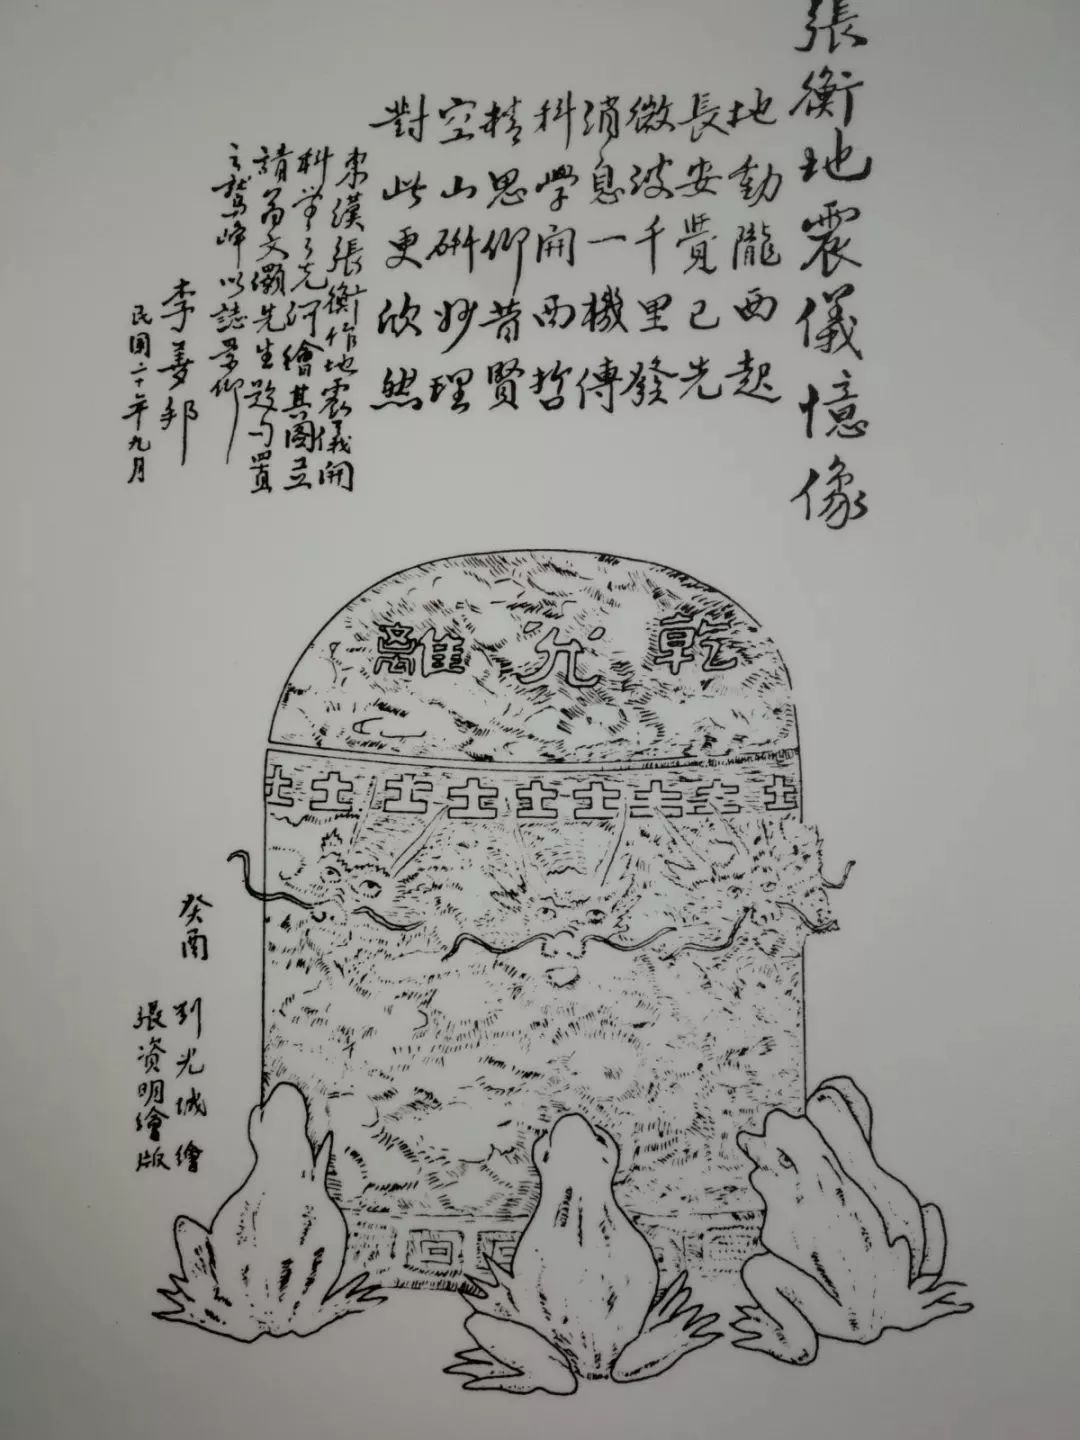 張衡地震儀憶像
地動隴西起
長安覺已先
微波千里發
消息一機傳
科學開西哲
精思仰昔賢
空山研妙理
對此更欣然
東漢張衡作地震儀開
科學之先河繪其圖並
請翁文灝先生題句置
之鷲峰以誌景仰
李善邦
民國二十年九月
離 兌 乾
土土土土土土土土土
癸酉 刘光城繪
張資明繪版